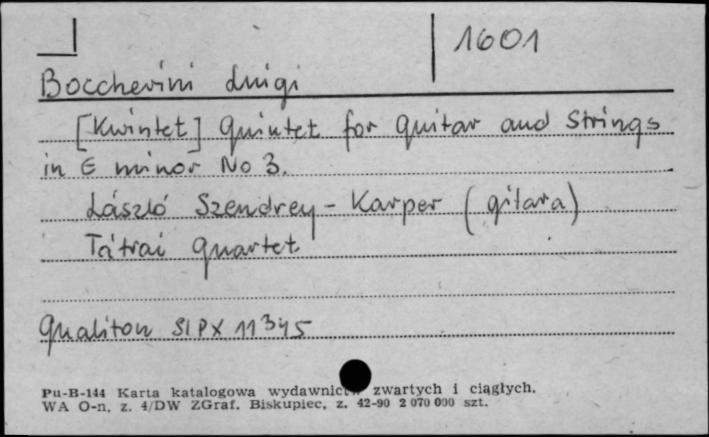 1601
Boccherini Luigi
[Kwintet] Quintet for guitar and Strings
in E minor No 3.
László Szendrey - Karper (gitara)
Tátrai quartet
Qualiton SLPX 11345
Pu-B-144 Karta katalogowa wydawnictw zwartych i ciągłych.
WA O-n. z. 4/DW ZGraf. Biskupiec, z. 42-90 2 070 000 szt.